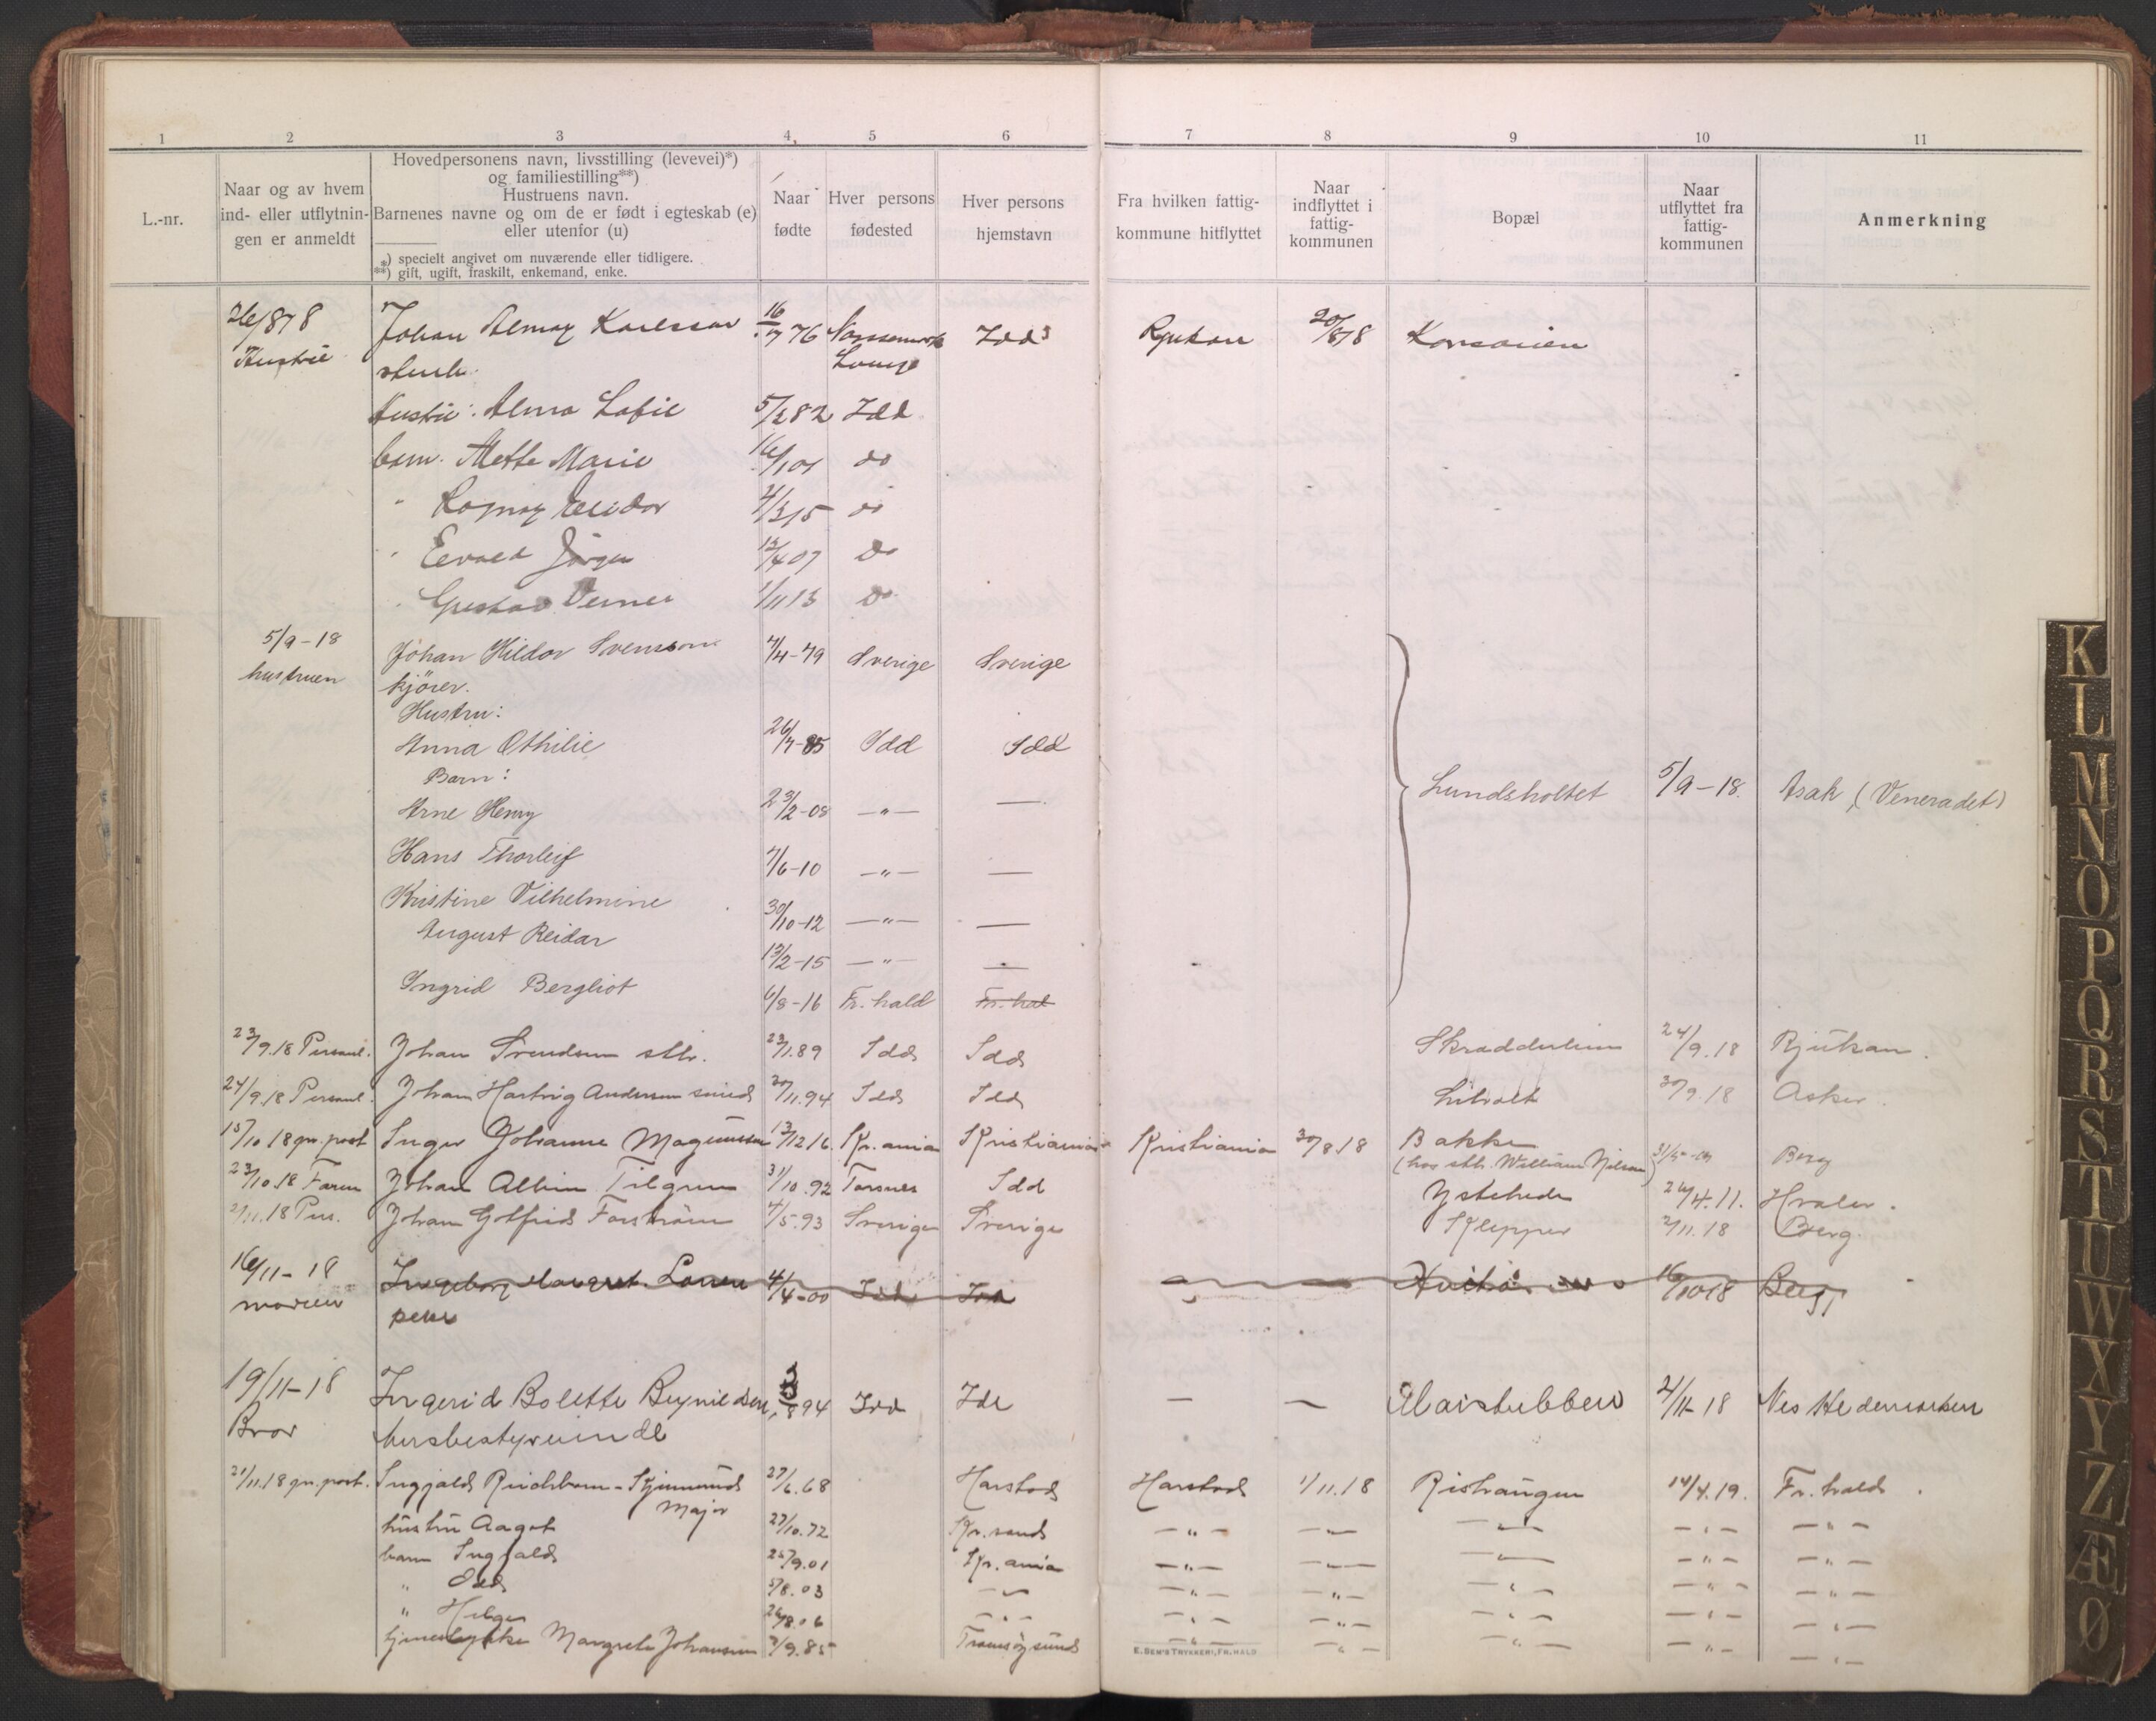 1 2 3 4, 5 6 7 8 9 10 11
L.-nr.
Naar og av hvem
ind- eller utflytnin-
gen er anmeldt
Hovedpersonens navn, livsstilling (levevei)*)
og familiestilling**)
Hustruens navn.
Barnenes navne og om de er født i egteskab (e)
eller utenfor (u)
*) specielt angivet om nuværende eller tidligere.
**) gift, ugift, fraskilt, enkemand, enke.
Naar
fødte
Hver persons
fødested
Hver persons
hjemstavn
Fra hvilken fattig-
kommune hitflyttet
Naar
indflyttet i
fattig-
kommunen
Bopæl
Naar
utflyttet fra
fattig-
kommunen
Anmerkning
26/8 18 Johan Almar Karlsson 76 Idd Rjukan 20/8 18
Hustru
Hustru: Alma Sofie 5/2 82 Idd
barn. Mette Marie 16/1 01 do
" Ragnar Reidar do
" Eevald Jørgen 07 do
" Gustav Verner 1/11 13 do
5/9-18 Johan Hildor Svensson 7/4-79 Sverige Sverige
hustruen kjører.
Hustru:
Anna Othilie 26/7-85 Idd Idd
Barn:
Arne Henry 23/2-08 —"— —
Lundsholtet 5/9-18. Asak (Veneradet)
Hans Thorleif 7/6-10 —"— —
Kristine Vilhelmine 30/10-12 —"— —
August Reidar 13/2-15 —"— —
Ingrid Bergliot 6/8-16 Fr.hald Fr.hal
23/9.18 Personl. Johan Svendsen stb. 23/1.89 Idd Idd 24/9.18 Rjukan.
24/9.18 Personl. Johan Hartvig Andersen smed 20/11.94 Idd Idd Liholt 30/9.18 Asker.
15/10 18 gn. post Inger Johanne Magnussen 13/12 16. Kr.ania Kristiania Kristiania 30/8 18 Bakke
(hos stb. William Nilsen) Berg
23/10.18 Faren Johan Albin Tilgren 31/10.92 Torsnes Idd Ystehede Hvaler.
2/11.18 Pers. Johan Gotfrid Forström 4/5.93 Sverige Sverige Klepper 2/11.18 Berg.
16/11-18 Ingeborg Margret. Larsen 4/4-00 Idd Idd 16/10 18 Berg
moren
19/11-18 Ingerid Bolette Beynildsen 94 Idd Idd — — 2/11 18 Nes Hedemarken
Bror husbestyrerinde
21/11.18 gn. post. Ingjald 27/6.68 Harstad Harstad 1/11.18 Rishaugen 14/4.19. Fr.hald.
Major
hustru Aagot 27/10.72 Kr.sand —"— —"— —"— —"— —"—
barn Ingjald 25/9.01 Kr.ania —"— —"— —"— —"— —"—
" Odd 5/8.03 —"— —"— —"— —"— —"— —"—
" Helge 26/8.06 —"— —"— —"— —"— —"— —"—
Margrete Johansen 7/9.85 Tromsøysund —"— —"— —"— —"— —"—
E. Sem's Trykkeri, Fr.hald
K
L
M
N
O
P
Q
R
S
T
U
W
X
Y
Z
Æ
Ø